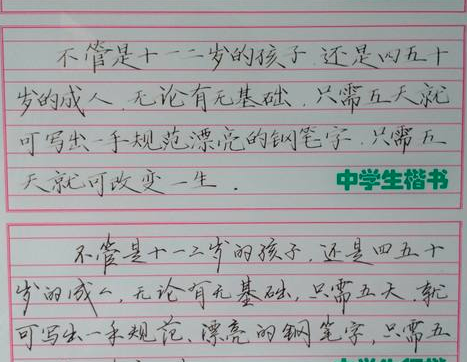 不管是十一二岁的孩子.还是四五十
岁的成人.无论有无基础.只需五天就
可写出一手规范漂亮的钢笔字.只需五
天就可改变一生.
中学生楷书
不管是十一二岁的孩子.还是四五十
岁的成人,无论有无基础,只需五天.就
可写出一手规范、漂亮的钢笔字,只需五